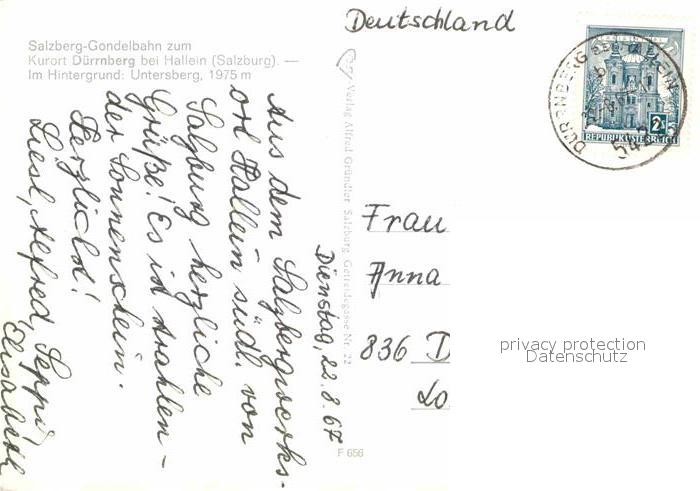 Salzberg-Gondelbahn zum
Kurort Dürrnberg bei Hallein (Salzburg). —
Im Hintergrund: Untersberg, 1975 m
Dienstag, 22.8.67
Aus dem Salzbergwerks-
ort Hallein südl. von
Salzburg herzliche
Grüße! Es ist strahlen-
der Sonnenschein.
Herzlichst!
Liesl, Alfred, Seppi,
Elisabeth
Verlag Alfred Gründler Salzburg, Getreidegasse Nr. 22
F 656
Deutschland
REPUBLIK ÖSTERREICH
DÜRRNBERG BEI HALLEIN
Frau
Anna
836 D
Lo
privacy protection
Datenschutz